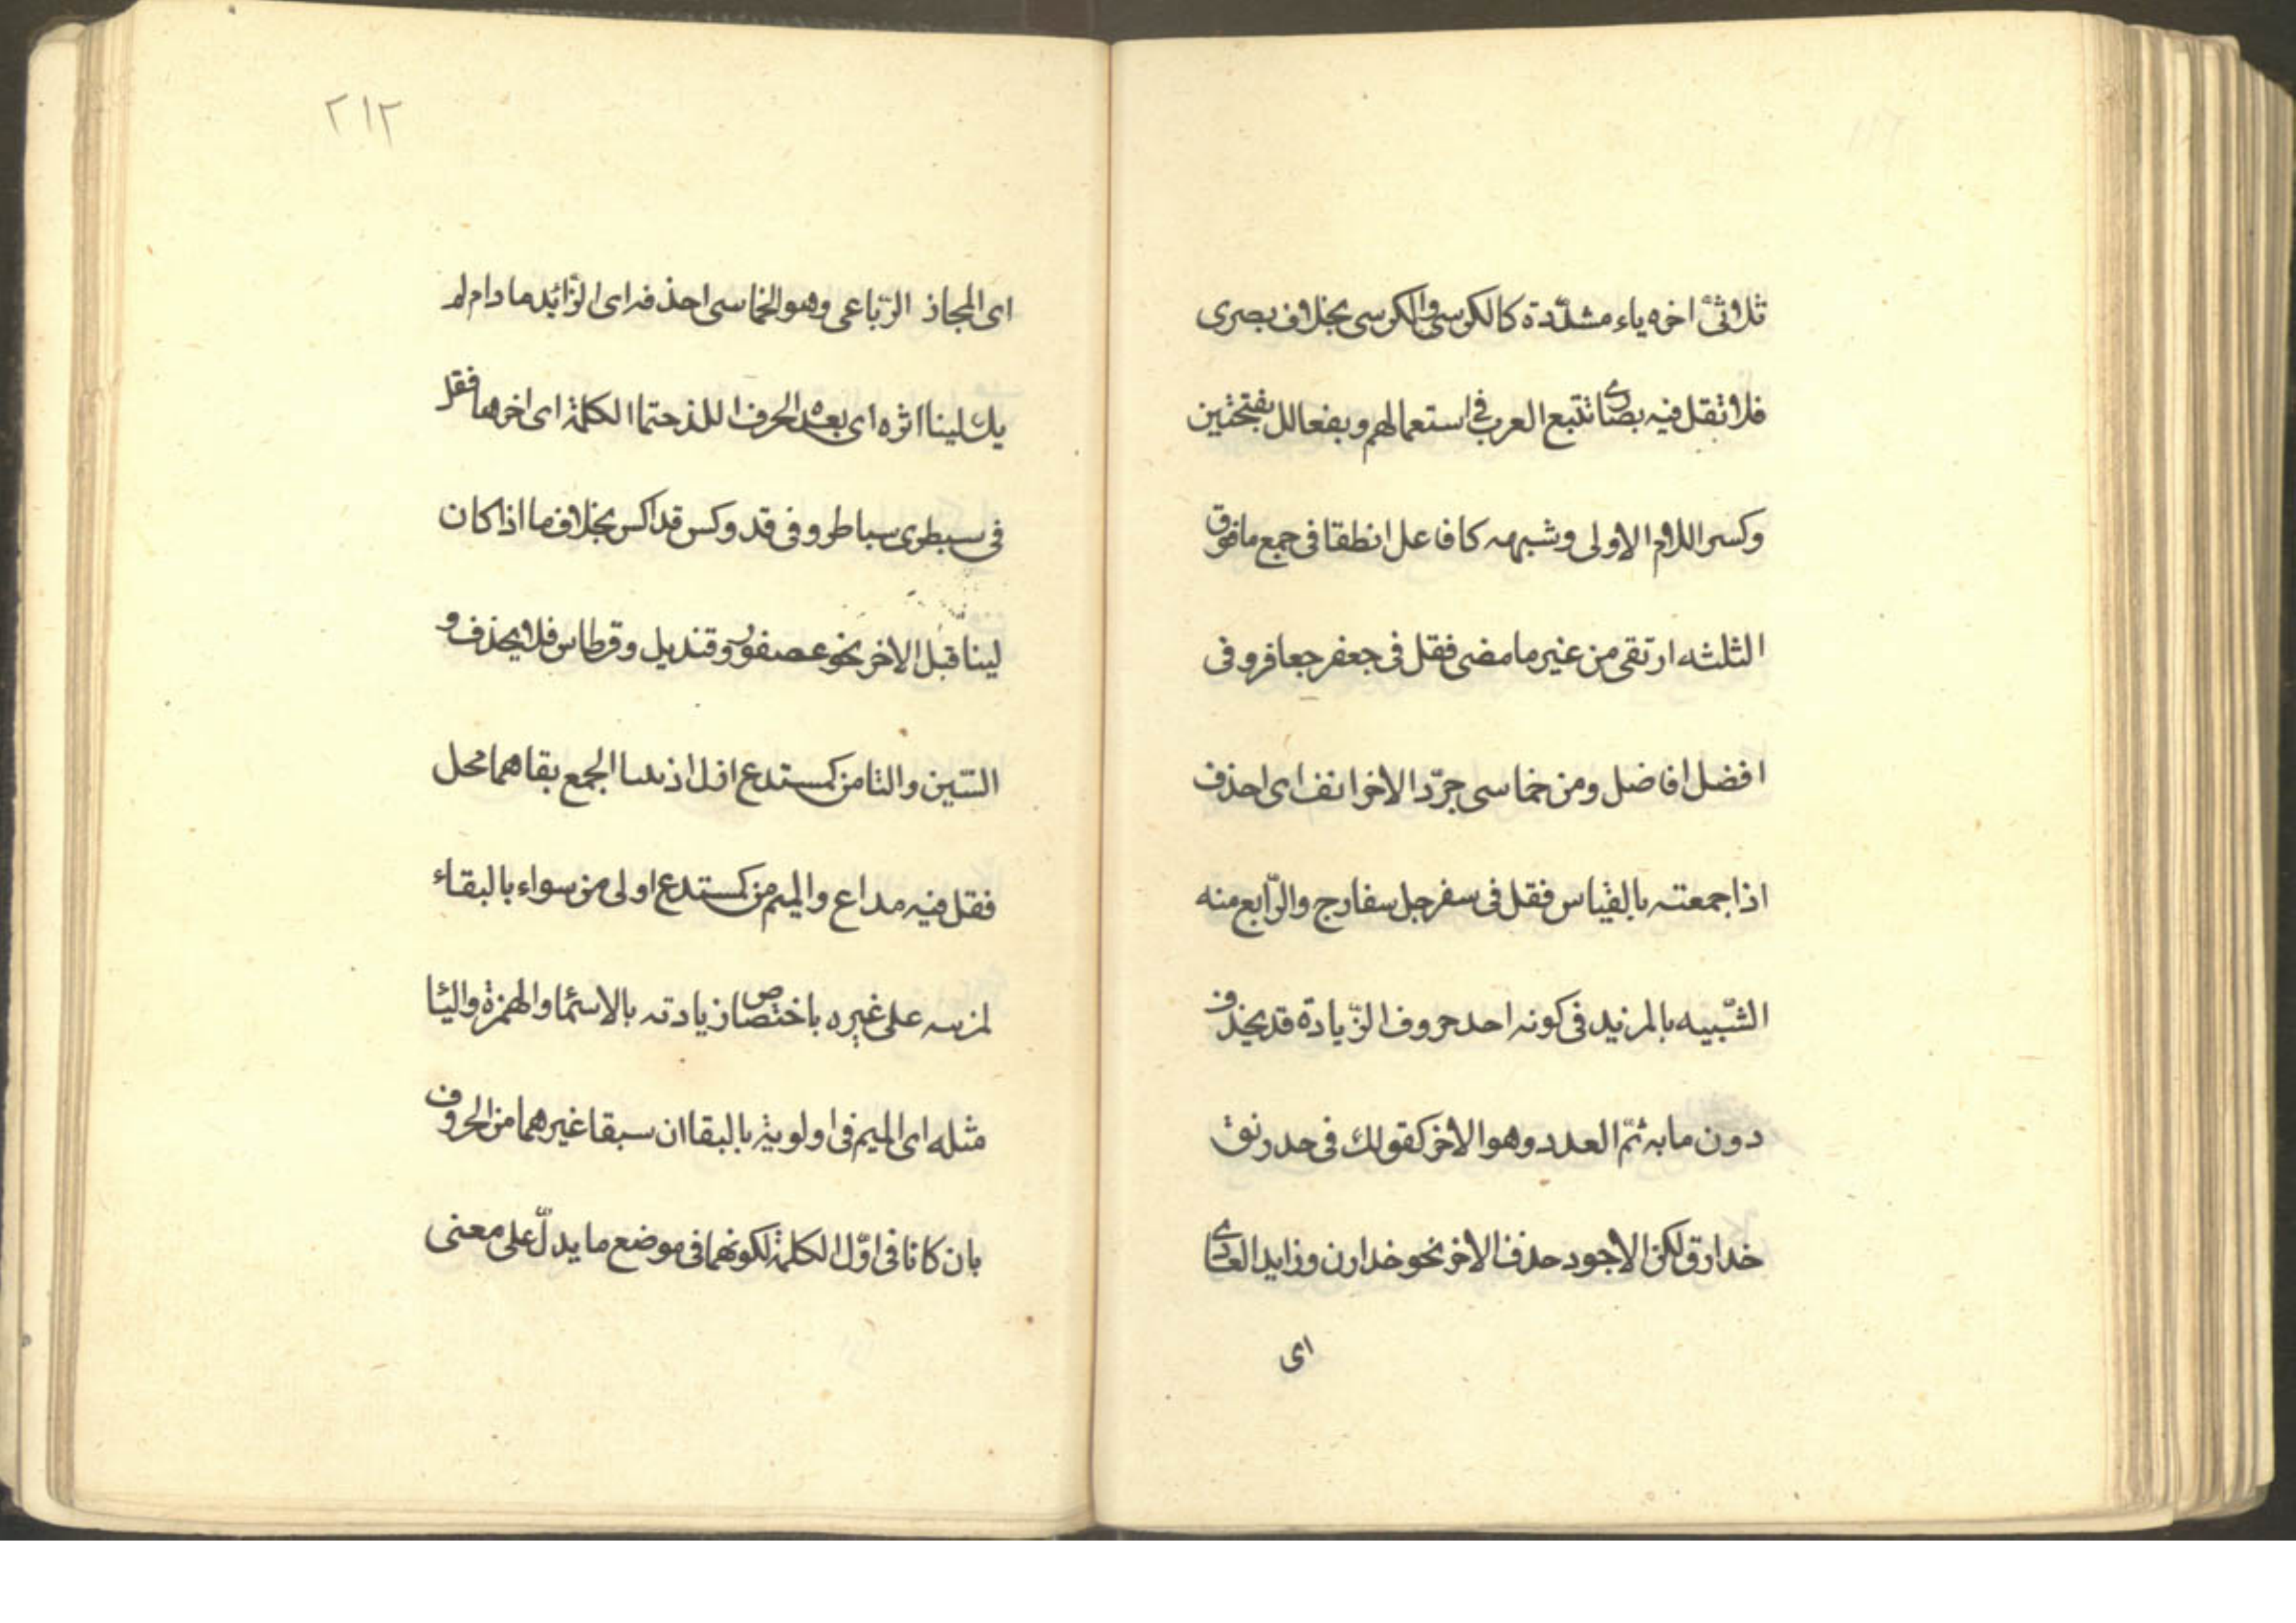 ثلاثىّ اخره ياء مشدّدة كالكرسى والكرسى بخلاف بصرى
فلا تقل فيه بصارى تتبع العرب فى استعمالهم وبفعالل بفتحتين
وكسر اللام الاولى وشبهه كافاعل انطقا فى جمع ما فوق
الثلثه ارتقى من غير ما مضى فقل فى جعفر جعافر وفى
افضل افاضل ومن خماسى جرّد الاخر انف اى احذف
اذا جمعته بالقياس فقل فى سفرجل سفارج والرّابع منه
الشّبيه بالمزيد فى كونه احد حروف الزّيادة قد يحذف
دون ما به تمّ العدد وهو الاخر كقولك فى خدرنق
خدارق لكن الاجود حذف الاخر نحو خدارن وزايد العادى
اى
٢١٢
اى المجاذ الرّباعى وهو الخماسى احذفه اى الزّائد ما دام لم
يك لينا اثره اى بعده الحرف اللذ ختما الكلمة اى اخرها فقل
فى سبطرى سباطر وفى قدوكس قداكس بخلاف ما اذا كان
لينا قبل الاخر نحو عصفور وقنديل وقرطاس فلا يحذف و
السّين والتا من كمستدع ازل اذ ببنا الجمع بقاهما محل
فقل فيه مداع والميم من كمستدع اولى من سواء بالبقاء
لمزيه على غيره باختصاص زيادته بالاسما والهمزة واليا
مثله اى الميم فى اولوية بالبقا ان سبقا غيرهما من الحروف
بان كانا فى اوّل الكلمة لكونهما فى موضع ما يدلّ على معنى